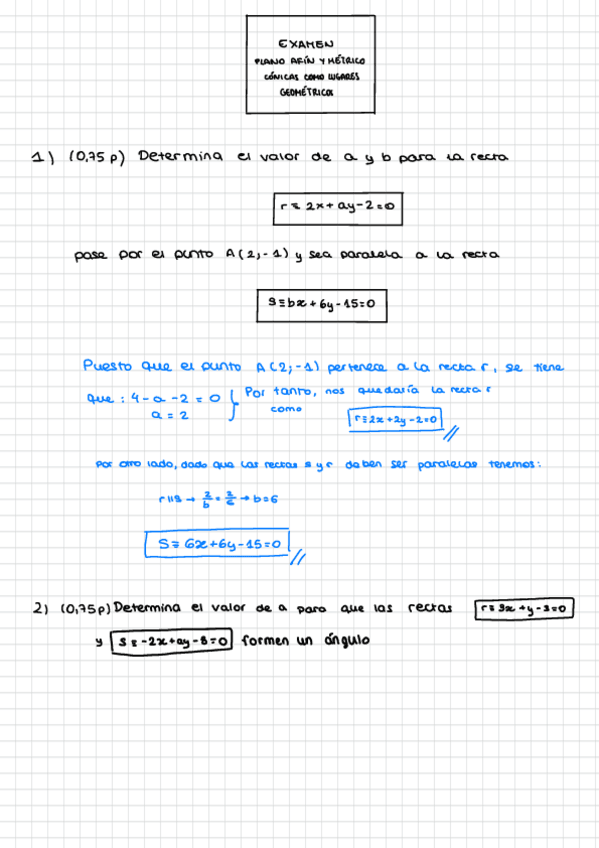 EXAMEN
PLANO AFÍN Y MÉTRICO
CÓNICAS COMO LUGARES
GEOMÉTRICOS
1) (0,75 p) Determina el valor de a y b para la recta
r ≡ 2x + ay - 2 = 0
pase por el punto A (2,-1) y sea paralela a la recta
s ≡ bx + 6y - 15 = 0
Puesto que el punto A (2,-1) pertenece a la recta r, se tiene
que : 4 - a - 2 = 0 } Por tanto, nos quedaría la recta r
a = 2 como r ≡ 2x + 2y - 2 = 0
Por otro lado, dado que las rectas s y r deben ser paralelas tenemos:
r || s → 2/b = 2/6 → b = 6
S ≡ 6x + 6y - 15 = 0
2) (0,75 p) Determina el valor de a para que las rectas r ≡ 3x + y - 3 = 0
y s ≡ -2x + ay - 8 = 0 formen un ángulo